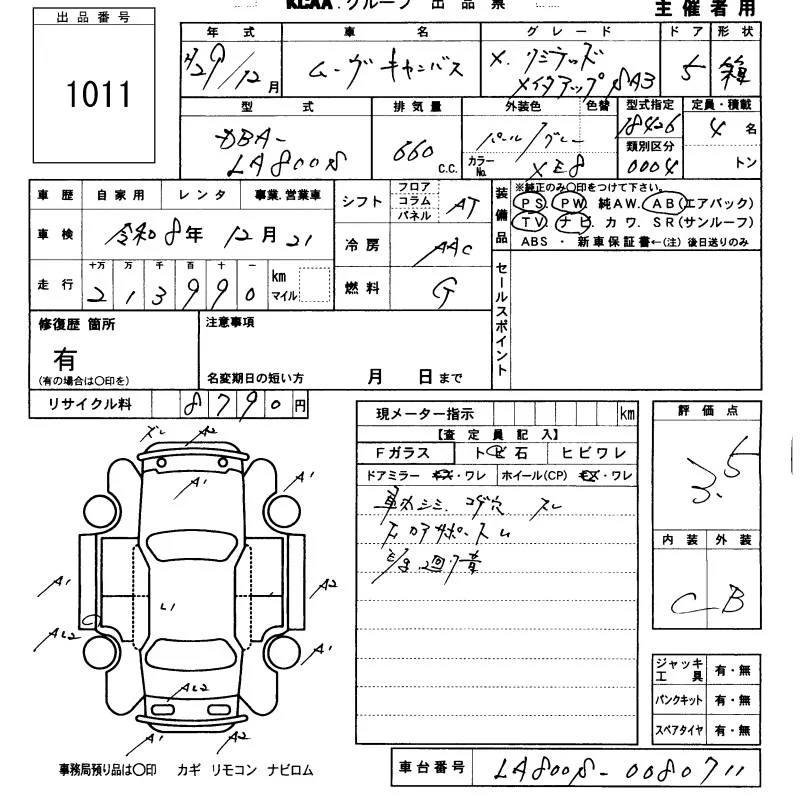 KCAA.グループ 出品票
主催者用
出品番号
1011
年式 車名 グレード ドア 形状
H29/12月 ムーヴキャンバス X.リミテッド メイクアップ SA3 5 箱
型式 排気量 外装色 色替 型式指定 定員・積載
DBA- LA800S 660 C.C. パール/グレー 18426 4名
カラーNo. XE8 類別区分 0004 トン
車歴 自家用 レンタ 事業.営業車
車検 令和8年12月21
走行 十万 万 千 百 十 一 km マイル
213990
シフト フロア コラム パネル AT
冷房 AAC
燃料 G
装備品 ※純正のみ○印をつけて下さい。
PS. PW. 純AW. AB(エアバック)
TV. ナビ. カワ. SR(サンルーフ)
ABS・新車保証書←(注)後日送りのみ
セールスポイント
修復歴 箇所
有
(有の場合は○印を)
注意事項
名変期日の短い方 月 日まで
リサイクル料 8790円
現メーター指示 km
【査定員記入】
Fガラス ト石 ヒビワレ
ドアミラー キズ・ワレ ホイール(CP) キズ・ワレ
車内シミ コゲ穴 スレ
評価点
3.5
内装 外装
C B
ズレ A2
A1 A1 A1
A1 A2
L1
AL2 A1
AL2
A1 A2
ジャッキ工具 有・無
パンクキット 有・無
スペアタイヤ 有・無
事務局預り品は○印 カギ リモコン ナビロム
車台番号 LA800S-0080711